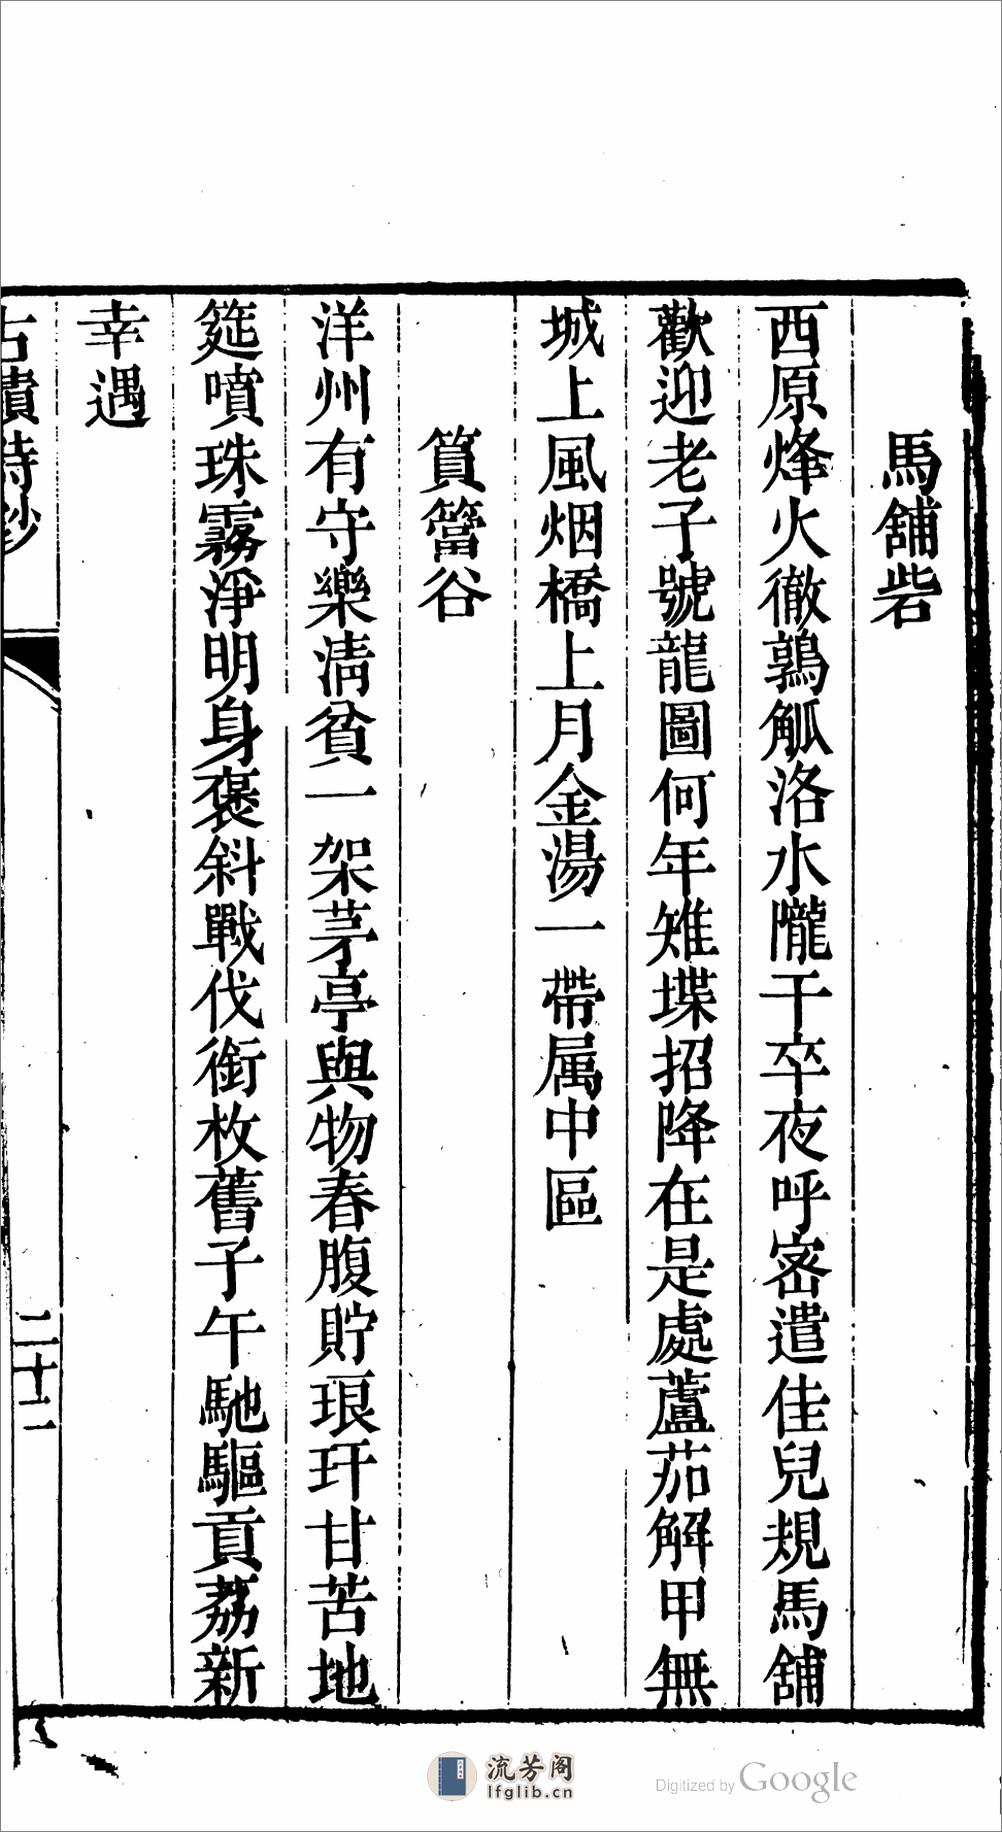 馬舖砦
西原烽火徹鶉觚洛水嚨干卒夜呼密遣佳兒規馬舖
歡迎老子號龍圖何年雉堞招降在是處蘆茄解甲無
城上風烟橋上月金湯一帶属中區
篔簹谷
洋州有守樂清貧一架茅亭與物春腹貯琅玕甘苦地
筵噴珠霧淨明身褒斜戰伐銜枚舊子午馳驅貢荔新
幸遇
古歡詩鈔
二十二
流芳阁
lfglib.cn
Digitized by Google